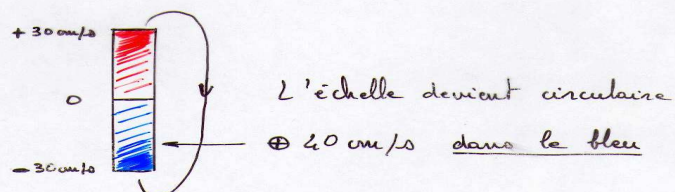 + 30 cm/s
0
L'échelle devient circulaire
⊕ 40 cm/s dans le bleu
− 30 cm/s